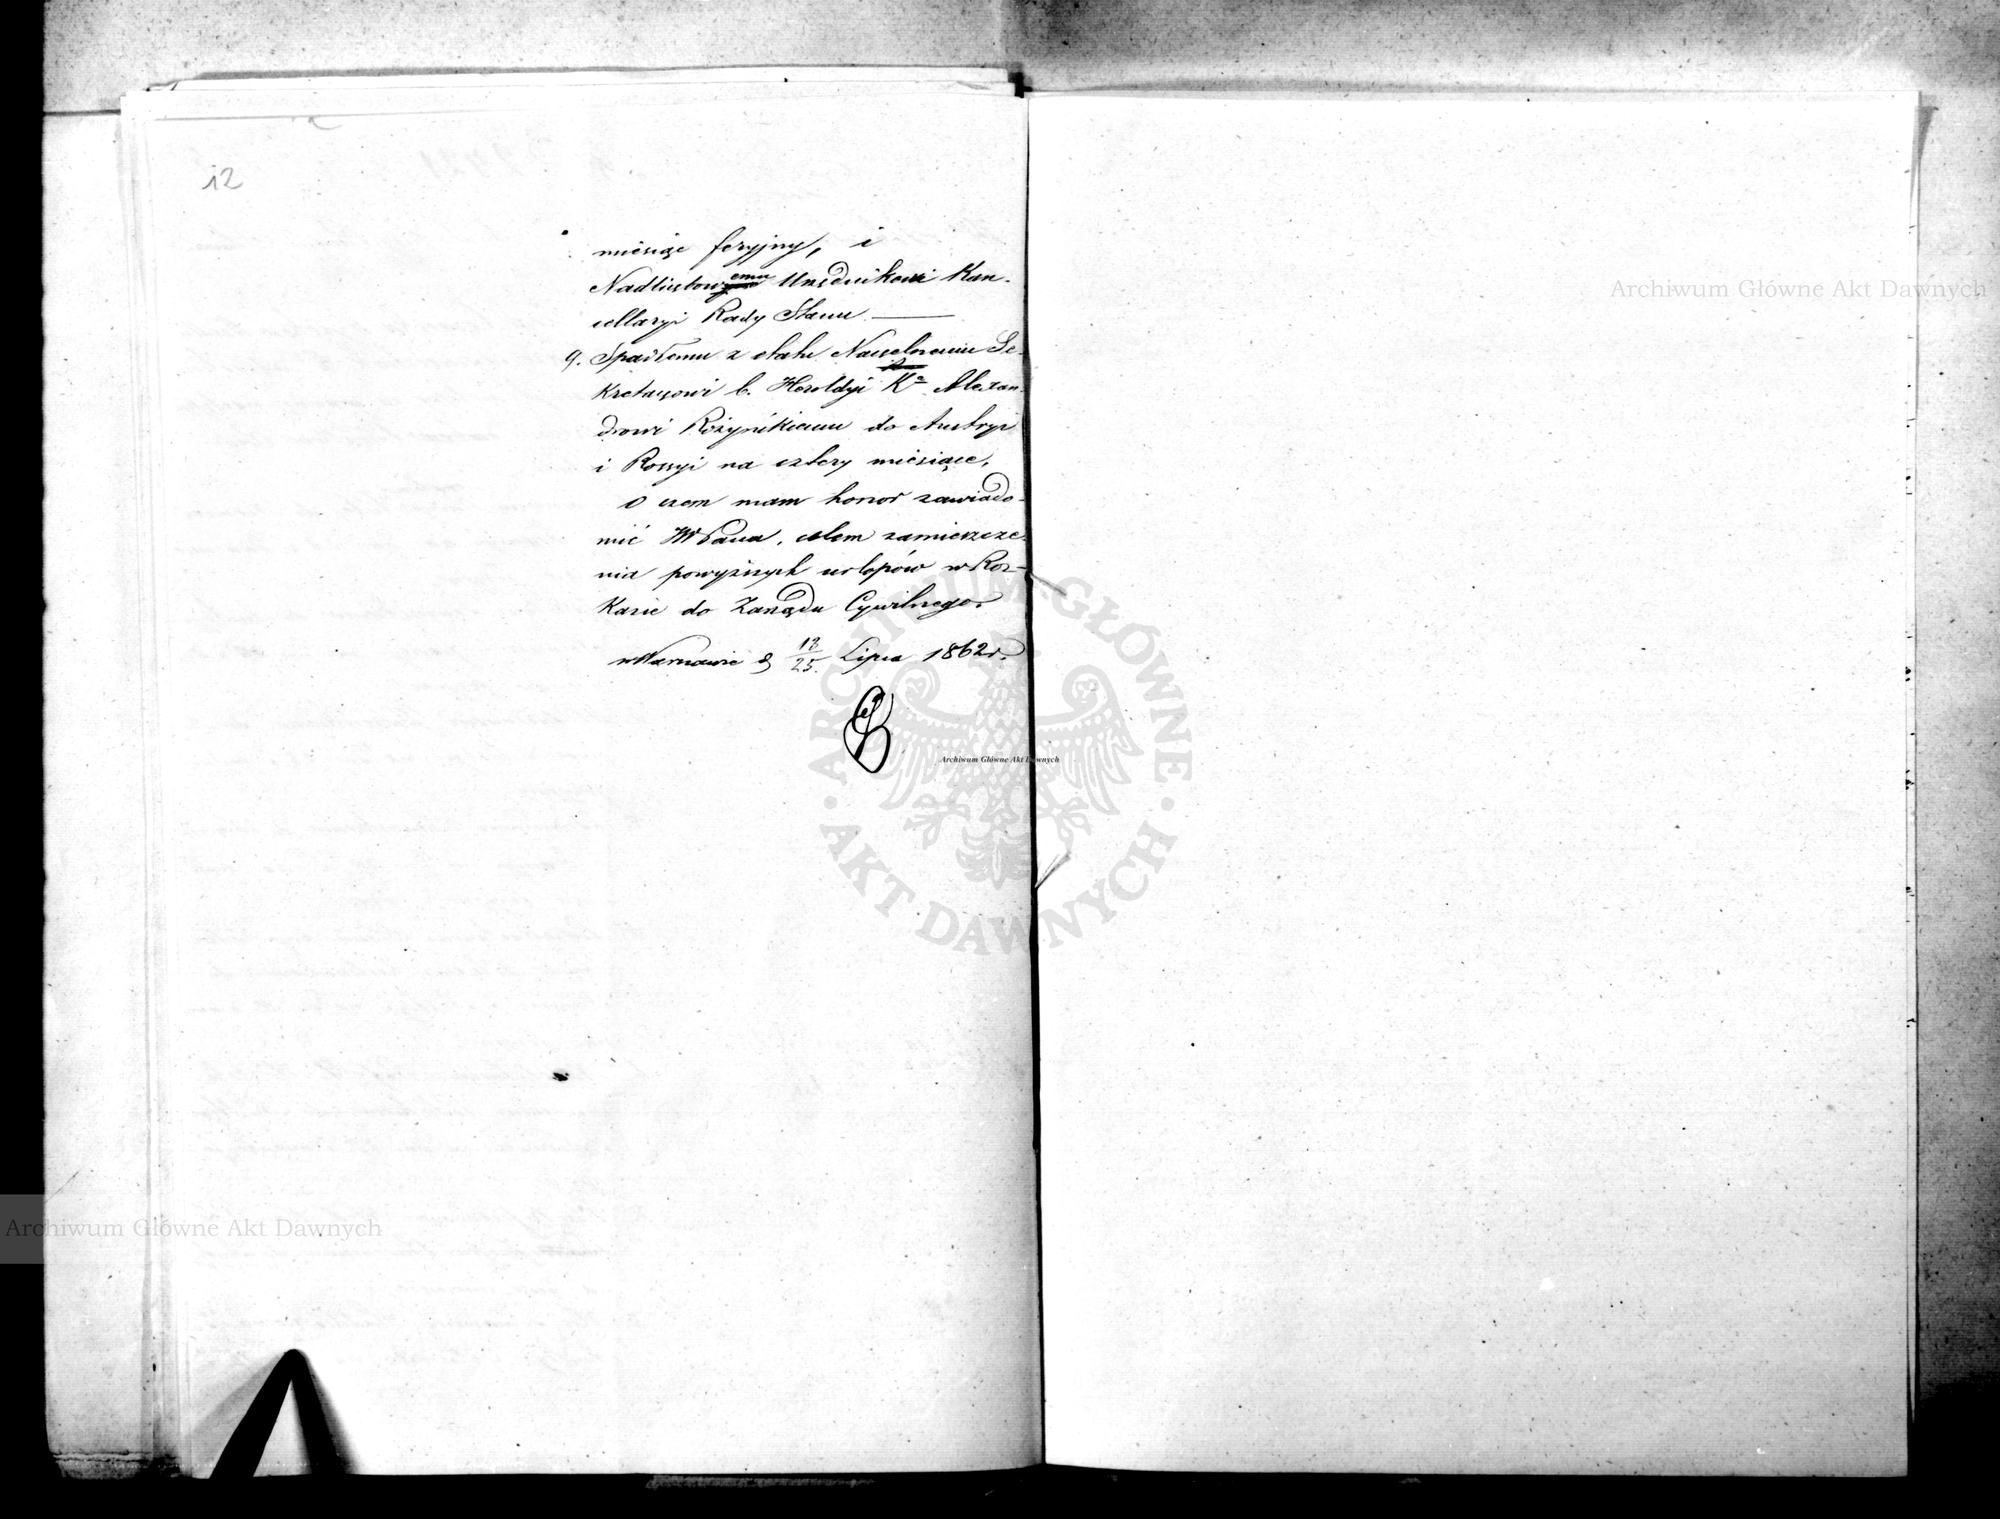 12
miesiąc feryjny, i
Nadliczbowemu Urzędnikowi Kan-
cellaryi Rady Stanu
9. Spadłemu z etatu Naczelnemu Se-
kretarzowi b. Heroldyi Kr Alexan-
drowi Różyńskiemu do Austryi
i Rossyi na cztery miesiące,
o czem mam honor zawiado-
mić WPana, celem zamieszcze-
nia powyższych urlopów w Roz-
kazie do Zarządu Cywilnego.
w Warszawie d 13/25 Lipca 1862 r.
Archiwum Główne Akt Dawnych
ARCHIWUM GŁÓWNE AKT DAWNYCH
Archiwum Główne Akt Dawnych
Archiwum Główne Akt Dawnych